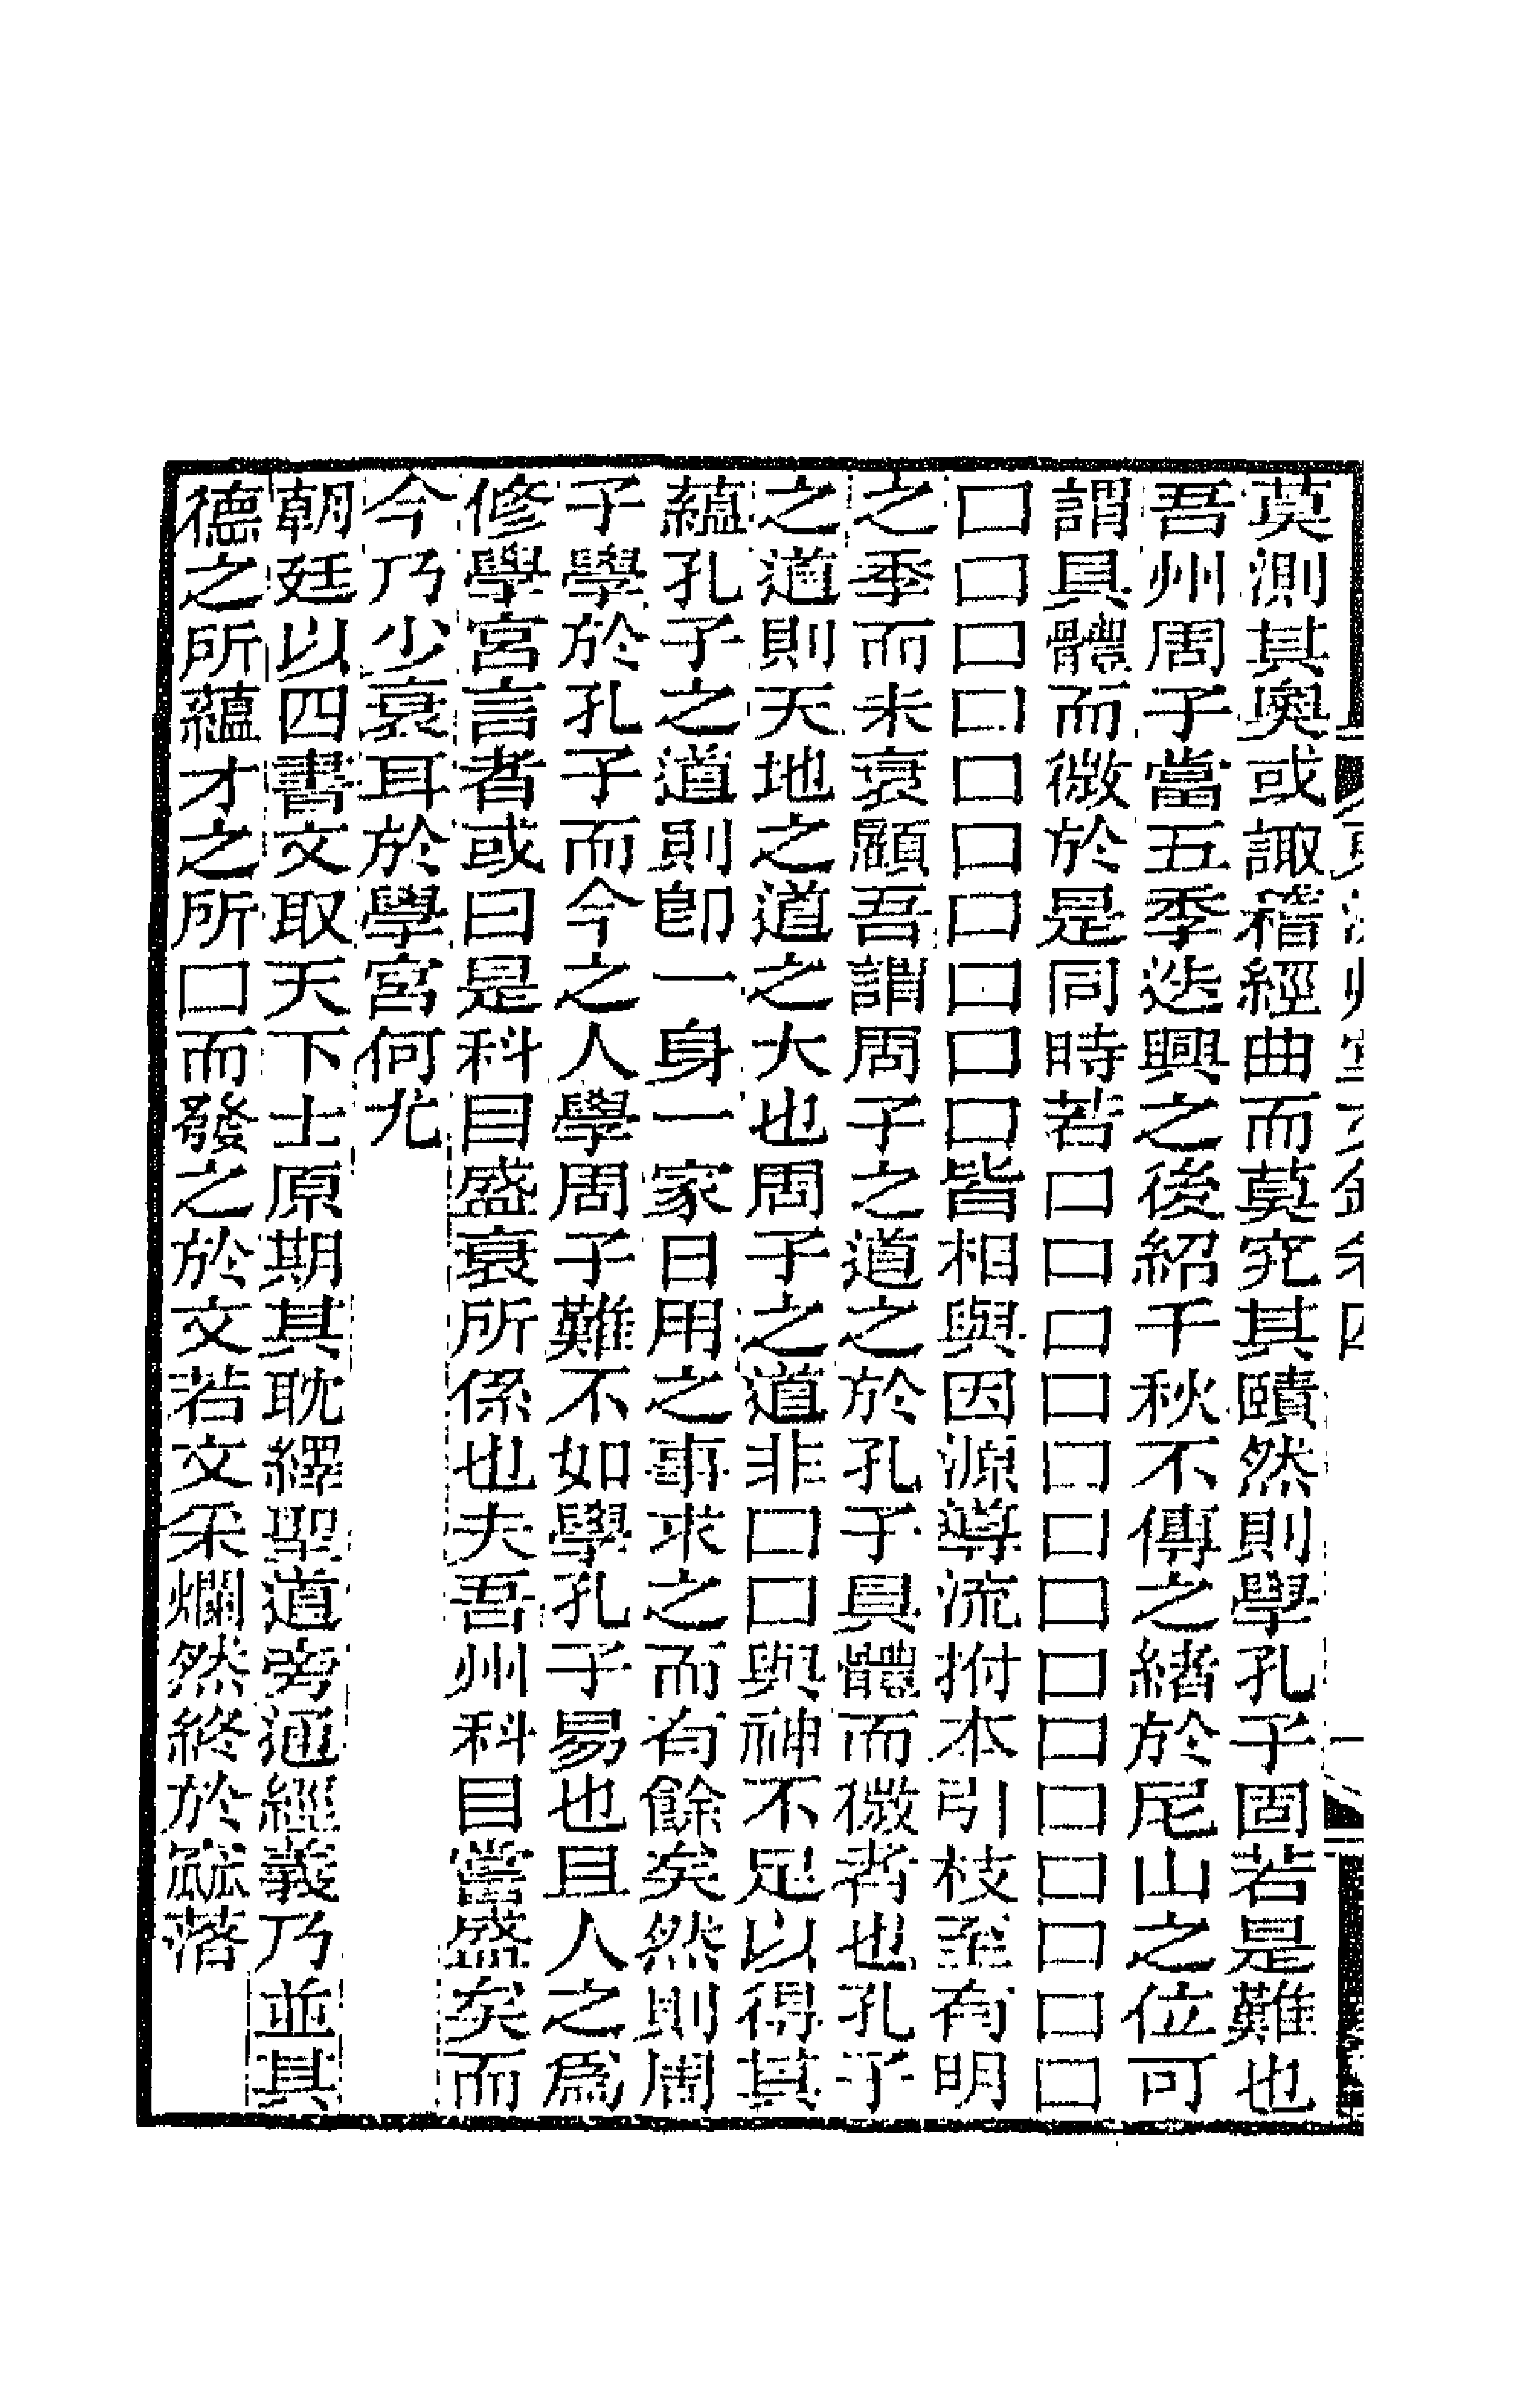 莫測其奧或諏稽經曲而莫究其賾然則學孔子固若是難也
吾州周子當五季迭興之後紹千秋不傳之緒於尼山之位可
謂具體而微於是同時若囗囗囗囗囗囗囗囗囗囗囗囗囗囗
囗囗囗囗囗囗囗囗囗囗皆相與因源導流拊本引枝至有明
之季而未衰顧吾謂周子之道之於孔子具體而微者也孔子
之道則天地之道之大也周子之道非囗囗與神不足以得其
蘊孔子之道則卽一身一家日用之事求之而有餘矣然則周
子學於孔子而今之人學周子難不如學孔子易也且人之爲
修學宮言者或曰是科目盛衰所係也夫吾州科目嘗盛矣而
今乃少衰耳於學宮何尤
朝廷以四書文取天下士原期其耽繹聖道旁通經義乃並其
德之所蘊才之所囗而發之於文若文采爛然終於瓠落